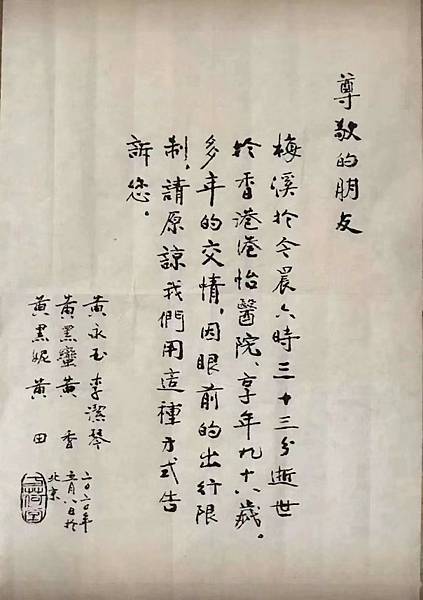 尊敬的朋友
梅溪扵今晨六時三十三分逝世
扵香港港怡醫院、享年九十八歲。
多年的交情，因眼前的出行限
制，請原諒我們用這種方式告
訴您。
黃永玉 李潔琴
黃黑蠻 黃香
黃黑妮 黃田
二〇二〇年
五月八日扵
北京